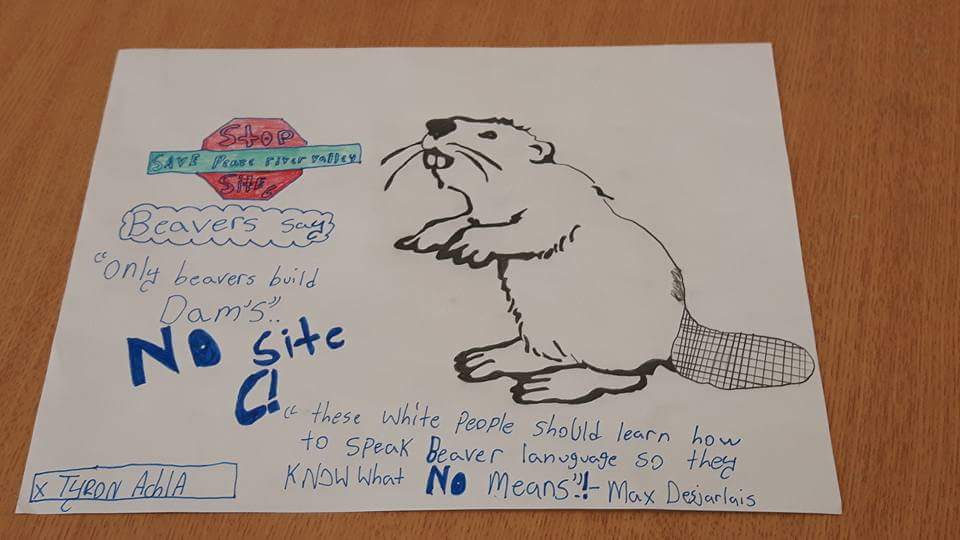 Stop
SAVE Peace river valley
Site C
Beavers say
"Only beavers build
Dam's"..
NO site
C!
"these white people should learn how
to speak Beaver lanuguage so they
KNOW What NO Means".!- Max Desjarlais
x TYRON AchlA